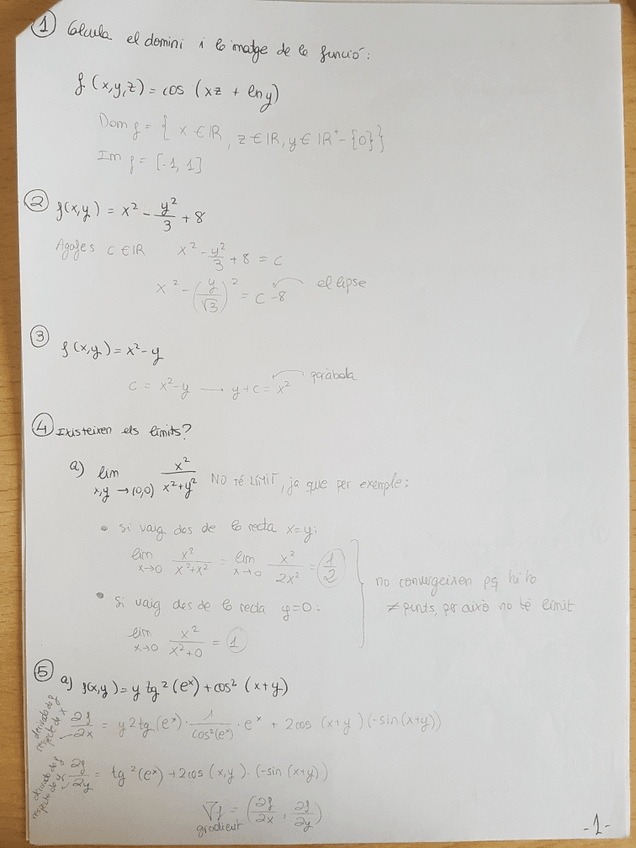 ① Calcula el domini i la imatge de la funció:
f(x,y,z) = cos (xz + ln y)
Dom f = { x ∈ IR, z ∈ IR, y ∈ IR⁺ - {0} }
Im f = [-1, 1]
② f(x,y) = x² - y²/3 + 8
Agafes c ∈ IR x² - y²/3 + 8 = c
x² - (y/√3)² = c - 8 el·lipse
③ f(x,y) = x² - y
c = x² - y → y + c = x² paràbola
④ Existeixen els límits?
a) lim x,y → (0,0) x²/(x²+y²) NO TÉ LÍMIT, ja que per exemple:
• Si vaig des de la recta x=y:
lim x→0 x²/(x²+x²) = lim x→0 x²/2x² = 1/2
• Si vaig des de la recta y=0:
lim x→0 x²/(x²+0) = 1
no convergeixen pq hi ha
≠ punts, per això no té límit
⑤ a) f(x,y) = y tg²(eˣ) + cos²(x+y)
derivada de f respecte de x ∂f/∂x = y 2tg(eˣ) · 1/cos²(eˣ) · eˣ + 2cos(x+y)(-sin(x+y))
derivada de f respecte de y ∂f/∂y = tg²(eˣ) + 2cos(x,y) · (-sin(x+y))
∇f = (∂f/∂x, ∂f/∂y)
gradient
-1-